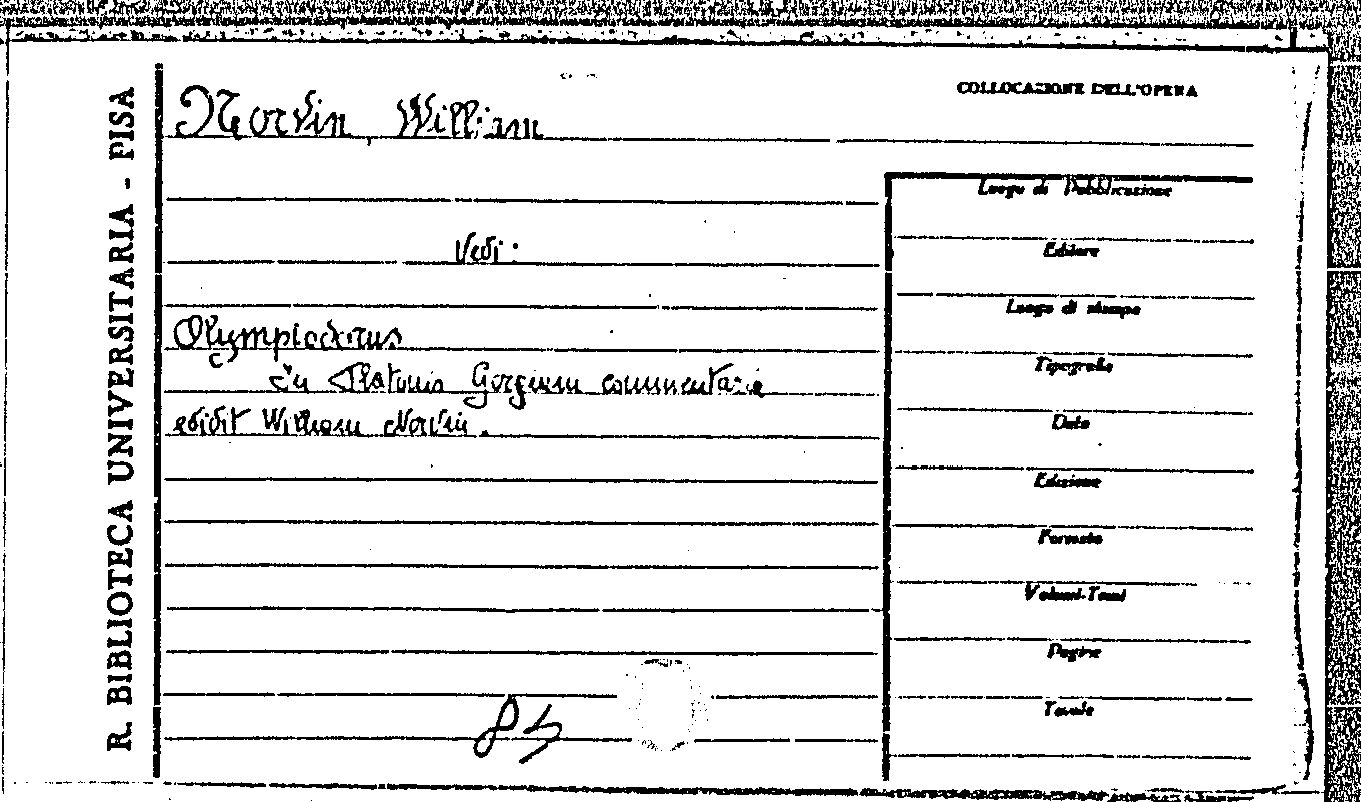 R. BIBLIOTECA UNIVERSITARIA - PISA
Norvin, William
COLLOCAZIONE DELL'OPERA
Vedi:
Olympiodorus
In Platonis Gorgiam commentaria
edidit William Norvin.
Luogo di Pubblicazione
Editore
Luogo di stampa
Tipografia
Data
Edizione
Formato
Volumi-Tomi
Pagine
Tavole